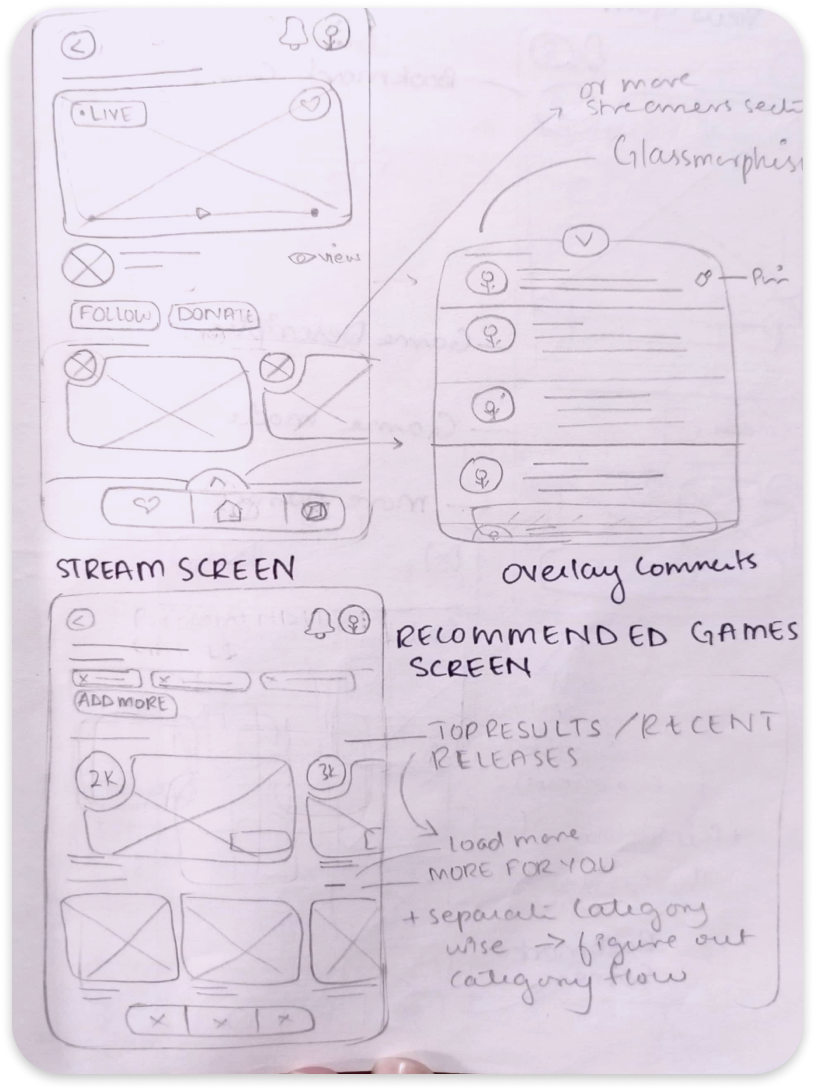 • LIVE
view
FOLLOW
DONATE
STREAM SCREEN
or more
streamers secti
Glassmorphis
Pin
Overlay Comments
RECOMMENDED GAMES
SCREEN
ADD MORE
2K
3K
TOP RESULTS / RECENT
RELEASES
load more
MORE FOR YOU
+ separate category
wise → figure out
category flow